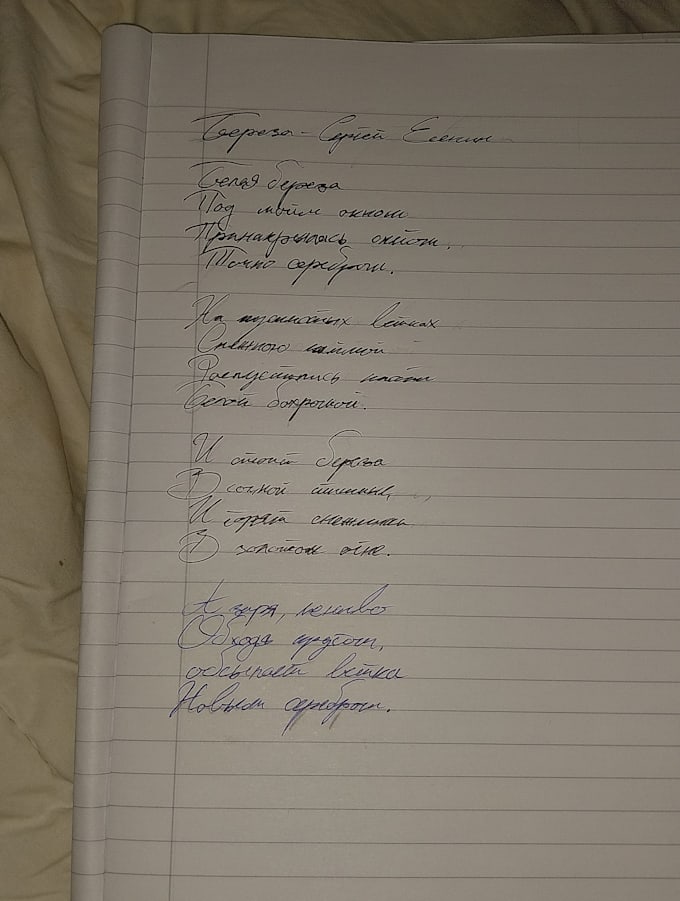 Береза - Сергей Есенин
Белая береза
Под моим окном
Принакрылась снегом,
Точно серебром.
На пушистых ветках
Снежною каймой
Распустились кисти
Белой бахромой.
И стоит береза
В сонной тишине,
И горят снежинки
В золотом огне.
А заря, лениво
Обходя кругом,
обсыпает ветки
Новым серебром.